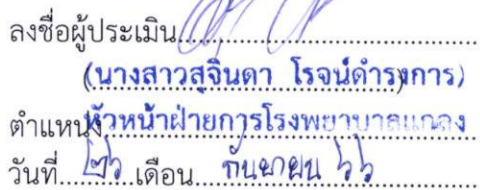 ลงชื่อผู้ประเมิน
(นางสาวสุจินดา โรจน์ดำรงการ)
ตำแหน่ง หัวหน้าฝ่ายการโรงพยาบาลแกลง
วันที่ ๒๖ เดือน กันยายน ๖๖